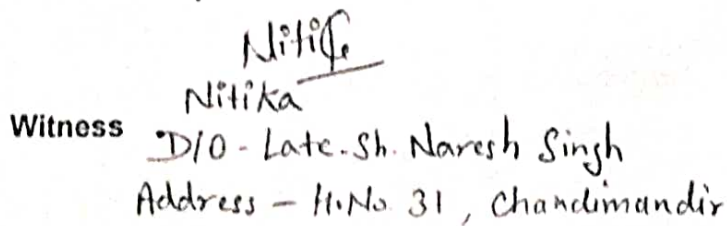 Nitika
Nitika
Witness
D/O - Late. Sh. Naresh Singh
Address - H.No 31, Chandimandir